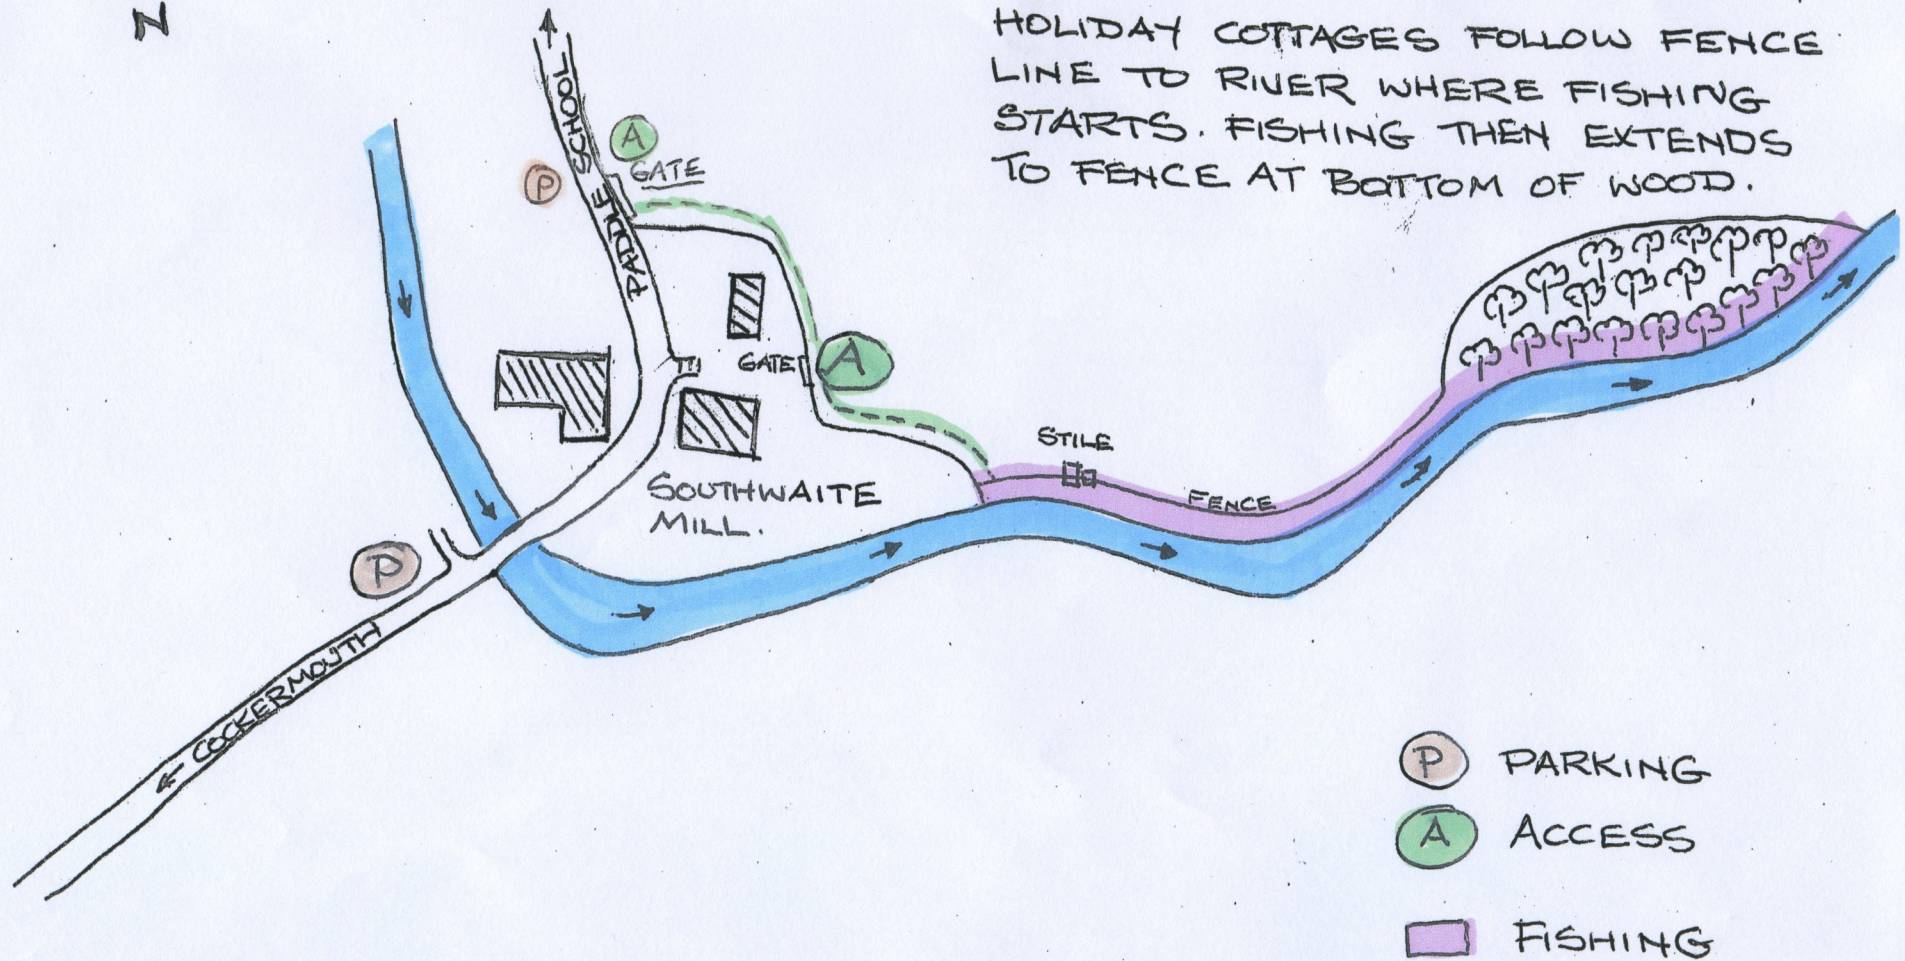 N
HOLIDAY COTTAGES FOLLOW FENCE
LINE TO RIVER WHERE FISHING
STARTS. FISHING THEN EXTENDS
TO FENCE AT BOTTOM OF WOOD.
PADDLE SCHOOL
A
GATE
P
GATE
A
STILE
FENCE
SOUTHWAITE
MILL.
P
COCKERMOUTH
P PARKING
A ACCESS
FISHING